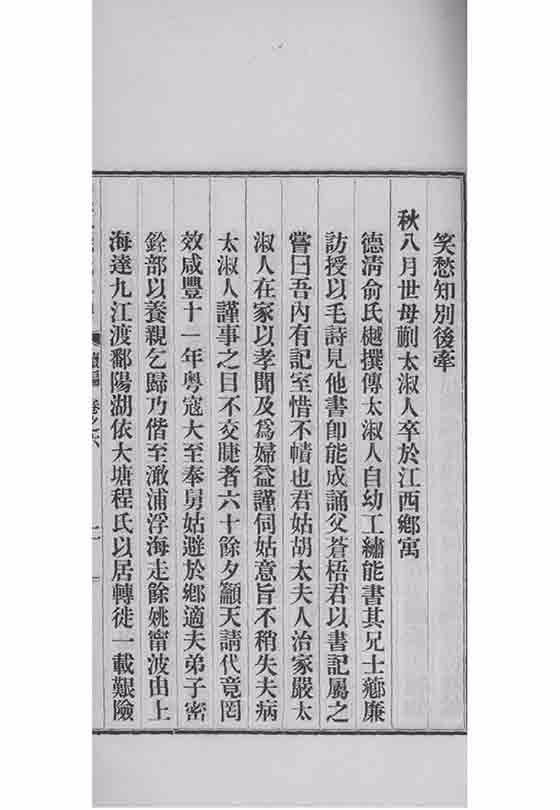 笑愁知別後牽
秋八月世母蒯太淑人卒於江西鄉寓
德清俞氏樾撰傳太淑人自幼工繡能書其兄士薌廉
訪授以毛詩見他書卽能成誦父蒼梧君以書記屬之
嘗曰吾內有記室惜不幘也君姑胡太夫人治家嚴太
淑人在家以孝聞及爲婦益謹伺姑意旨不稍失夫病
太淑人謹事之目不交睫者六十餘夕籲天請代竟罔
效咸豐十一年粵寇大至奉舅姑避於鄉適夫弟子密
銓部以養親乞歸乃偕至澉浦浮海走餘姚甯波由上
海達九江渡鄱陽湖依大塘程氏以居轉徙一載艱險
續編 卷之六